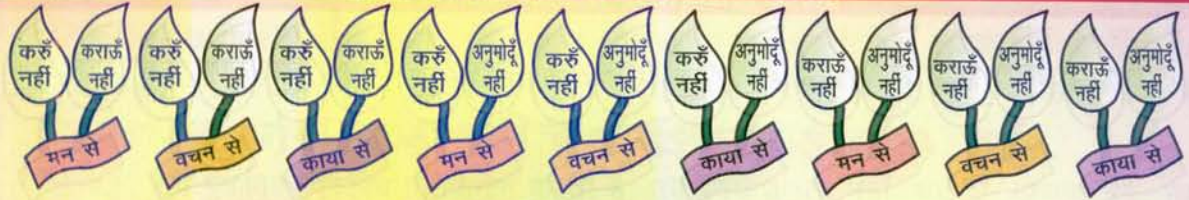 करूँ नहीं
कराऊँ नहीं
मन से
करूँ नहीं
कराऊँ नहीं
वचन से
करूँ नहीं
कराऊँ नहीं
काया से
करूँ नहीं
अनुमोदूँ नहीं
मन से
करूँ नहीं
अनुमोदूँ नहीं
वचन से
करूँ नहीं
अनुमोदूँ नहीं
काया से
कराऊँ नहीं
अनुमोदूँ नहीं
मन से
कराऊँ नहीं
अनुमोदूँ नहीं
वचन से
कराऊँ नहीं
अनुमोदूँ नहीं
काया से